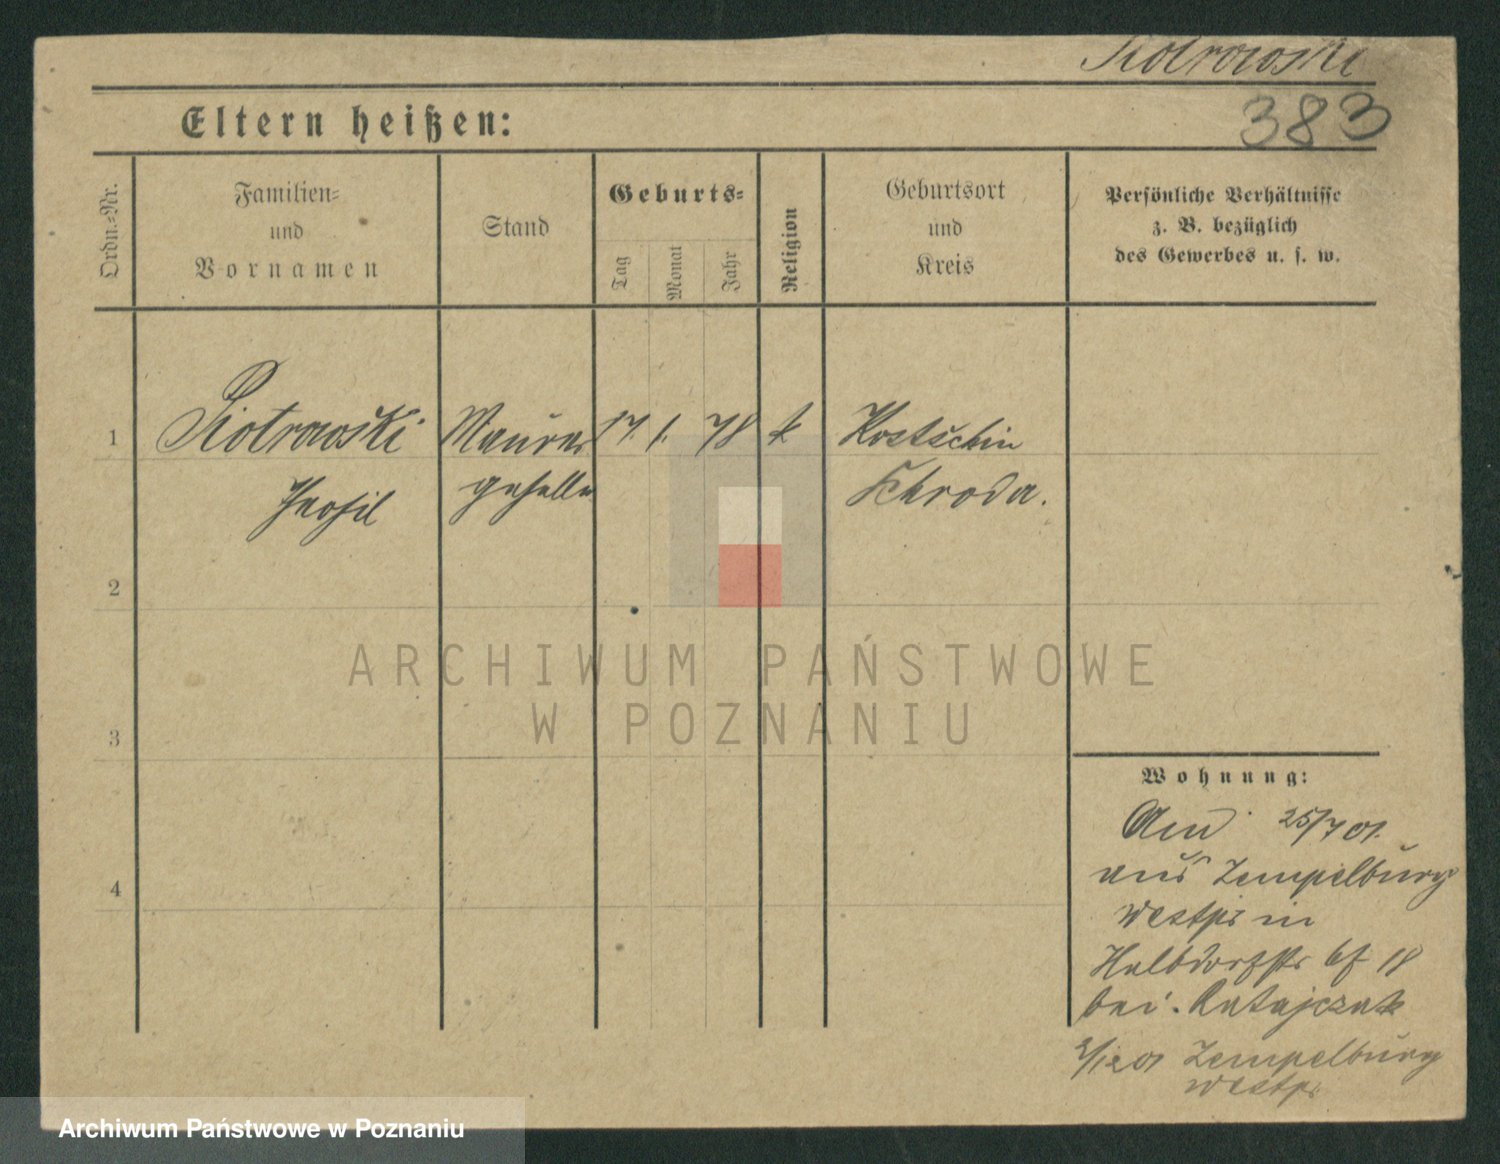 Piotrowski
383
Eltern heißen:
Ordn.-Nr.
Familien-
und
Vornamen
Stand
Geburts-
Tag
Monat
Jahr
Religion
Geburtsort
und
Kreis
Persönliche Verhältnisse
z. B. bezüglich
des Gewerbes u. s. w.
1 Piotrowski Maurer 17. 1. 78 k Kostschin
Theofil geselle Schroda.
2
3
4
ARCHIWUM PAŃSTWOWE
W POZNANIU
Wohnung:
25/7 01.
aus Zempelburg
Westpr in
Halbdorfstr 18
bei Ratajczak
2/12 01 Zempelburg
Westpr
Archiwum Państwowe w Poznaniu